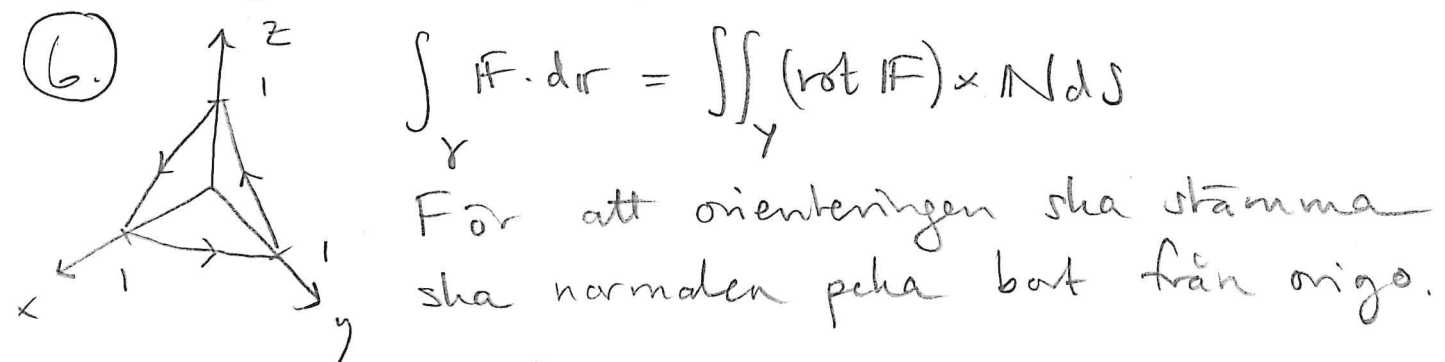 6.
z
1
∫_γ 𝔽 · d𝕣 = ∬_Y (rot 𝔽) × ℕ dS
För att orienteringen ska stämma
ska normalen peka bort från origo.
1
1
x
y